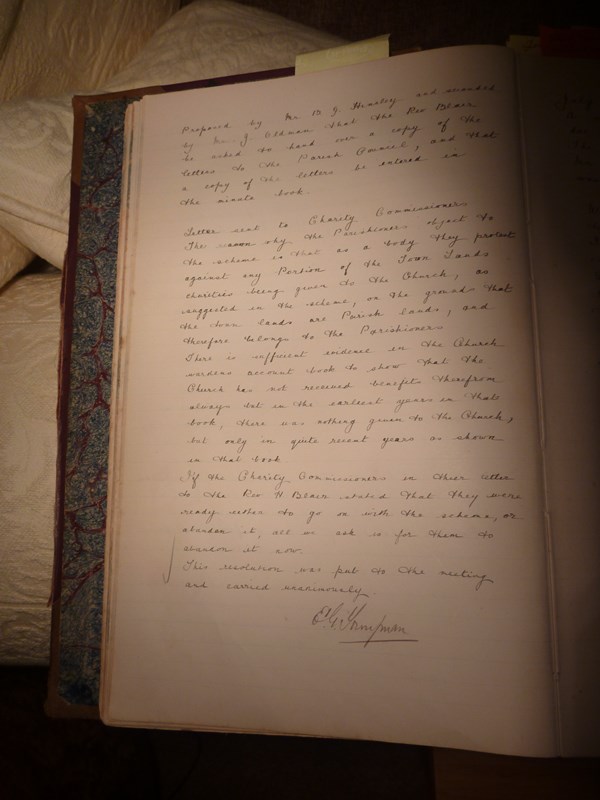 Proposed by Mr B. J. Hensley and seconded
by Mr. J. Oldman that the Rev Blair
be asked to hand over a copy of the
letters to the Parish Council, and that
a copy of the letters be entered in
the minute book.
Letter sent to Charity Commissioners
The reason why the Parishioners object to
the scheme is that as a body they protest
against any Portion of the Town Lands
charities being given to the Church, as
suggested in the scheme, on the grounds that
the town lands are Parish lands, and
therefore belongs to the Parishioners
There is sufficient evidence in the Church
wardens account book to show that the
Church has not received benefits therefrom
always but in the earliest years in that
book, there was nothing given to the Church,
but only in quite recent years as shown
in that book
If the Charity Commissioners in their letter
to the Rev H Blair stated that they were
ready either to go on with the scheme, or
abandon it, all we ask is for them to
abandon it now.
This resolution was put to the meeting
and carried unanimously.
E. G.